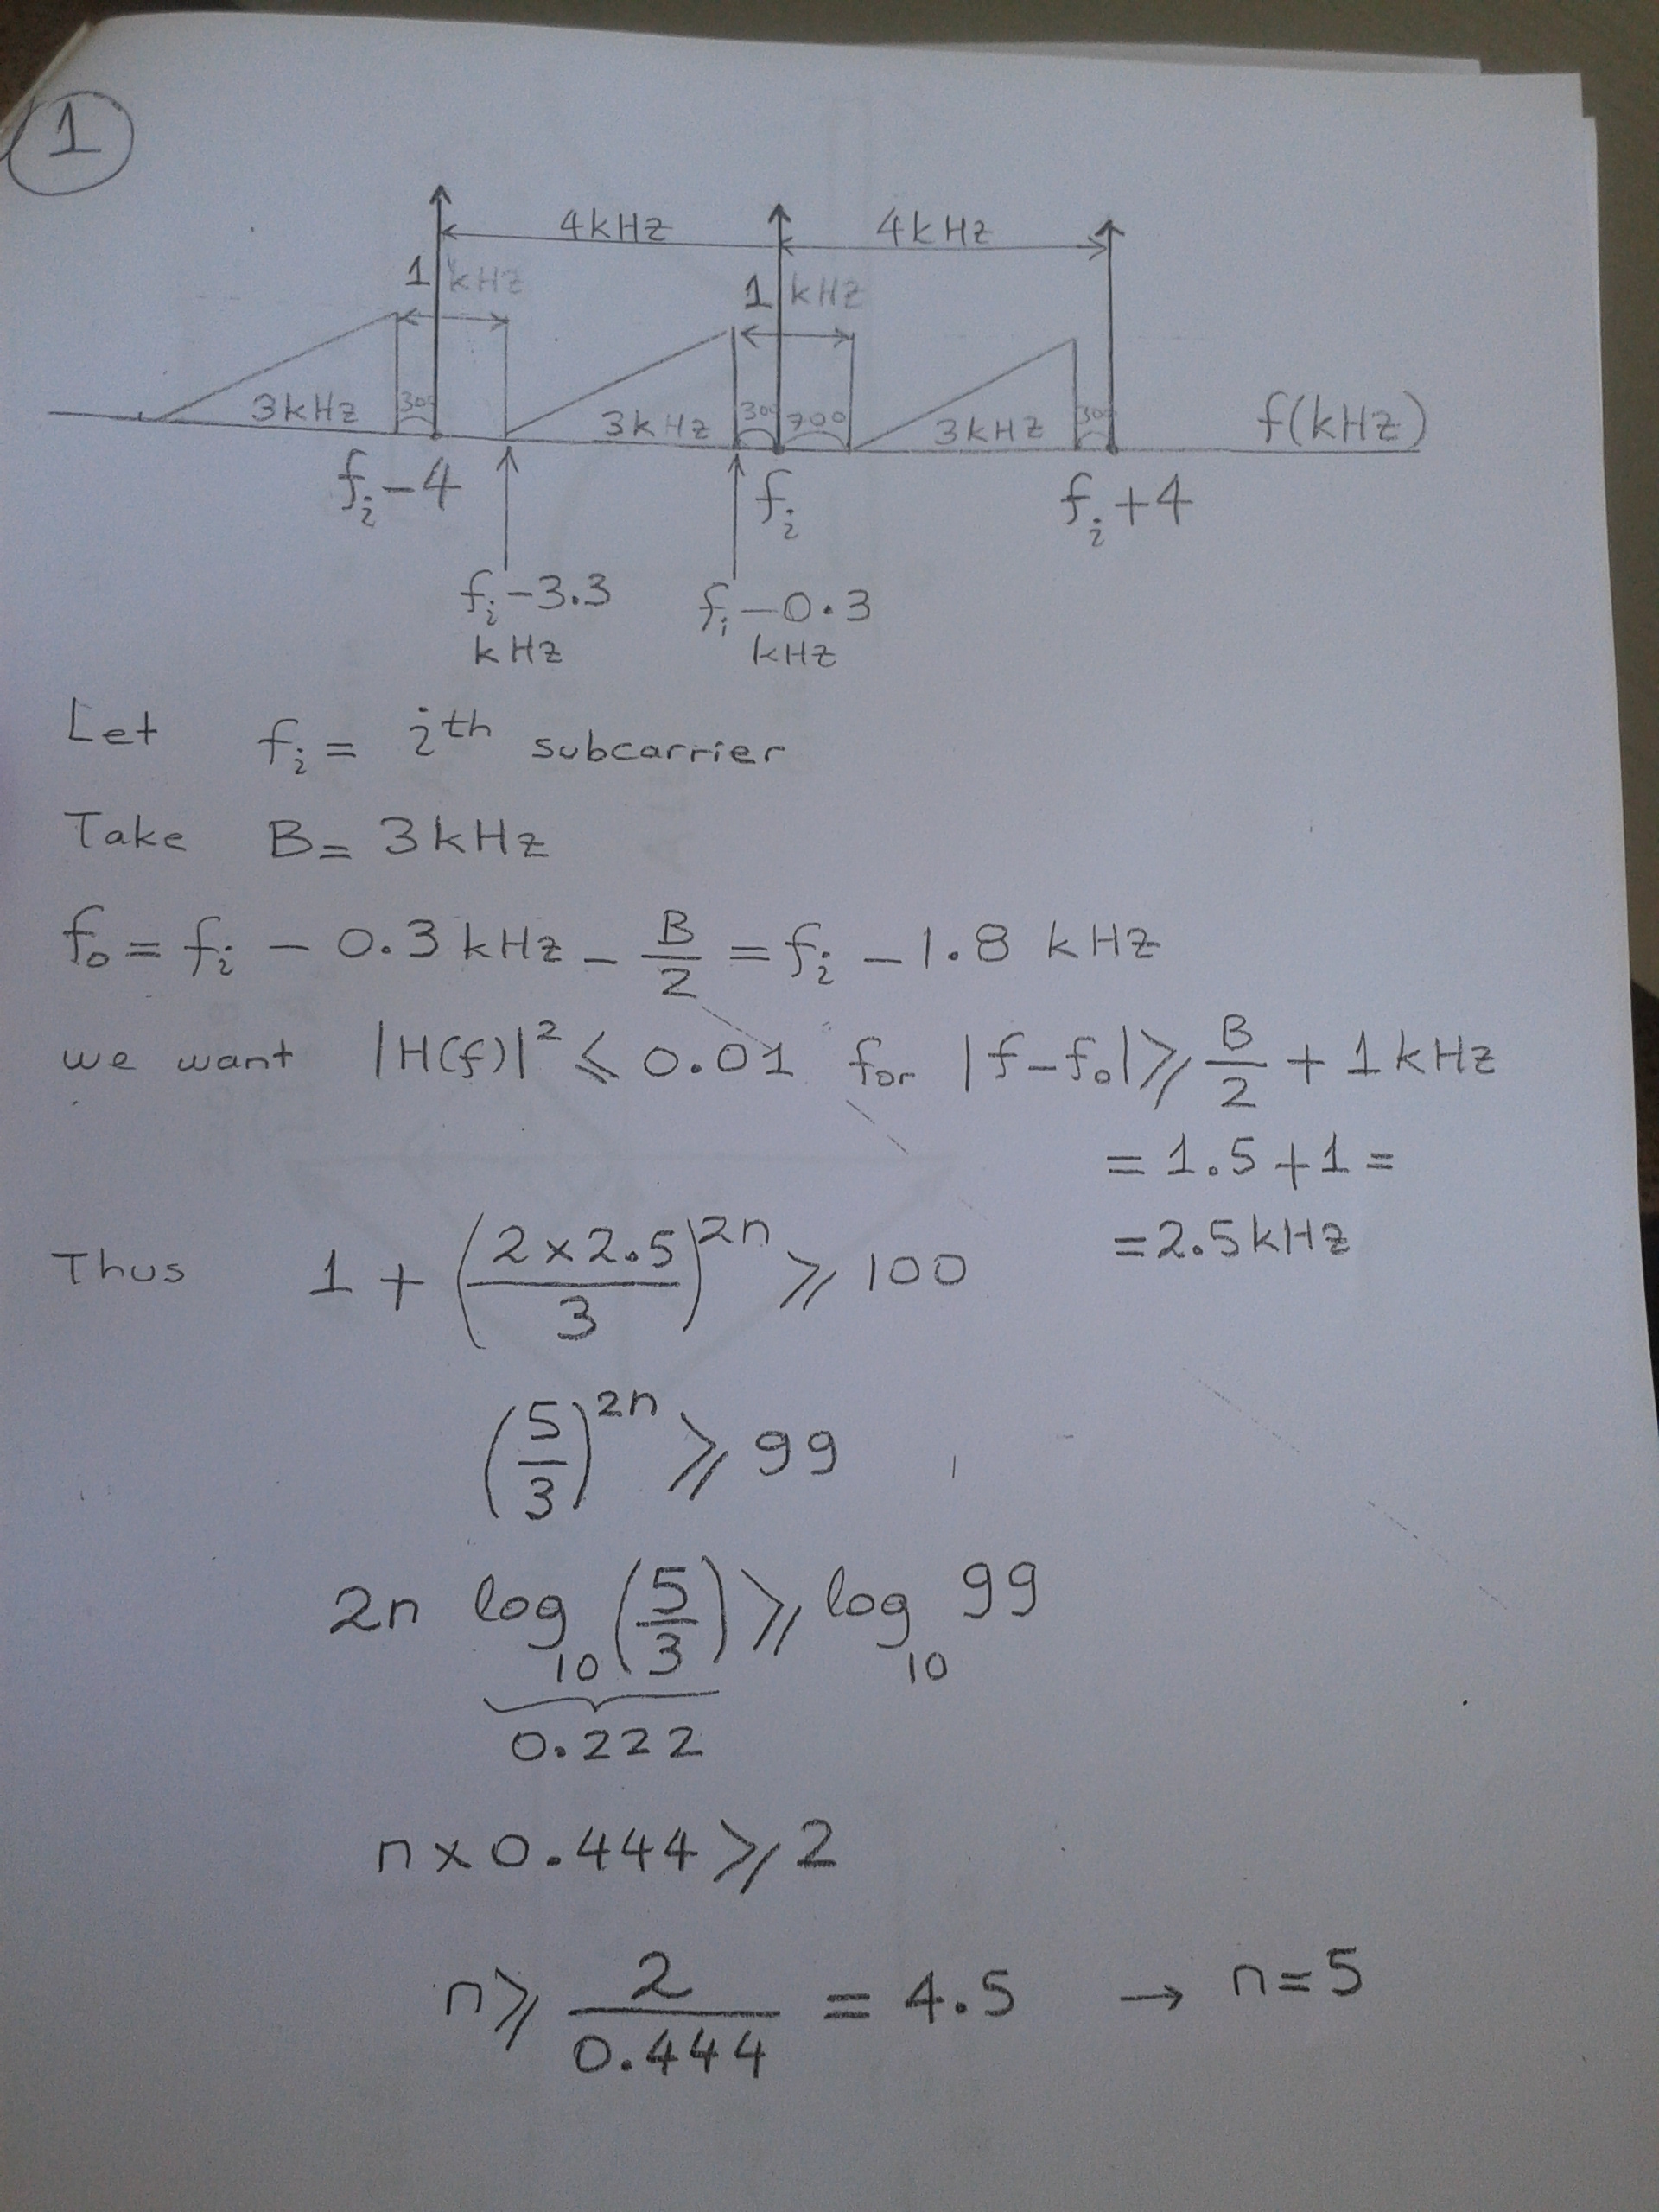 1
4kHz 4kHz
1 kHz 1 kHz
3kHz 300 3kHz 300 700 3kHz 300 f(kHz)
fi-4 fi fi+4
fi-3.3 kHz fi-0.3 kHz
Let fi = ith subcarrier
Take B= 3kHz
f0 = fi - 0.3 kHz - B/2 = fi - 1.8 kHz
we want |H(f)|² ⩽ 0.01 for |f-f0| ⩾ B/2 + 1kHz
= 1.5+1 =
= 2.5kHz
Thus 1 + (2×2.5/3)^2n ⩾ 100
(5/3)^2n ⩾ 99
2n log10 (5/3) ⩾ log10 99
0.222
n×0.444 ⩾ 2
n ⩾ 2/0.444 = 4.5 → n=5